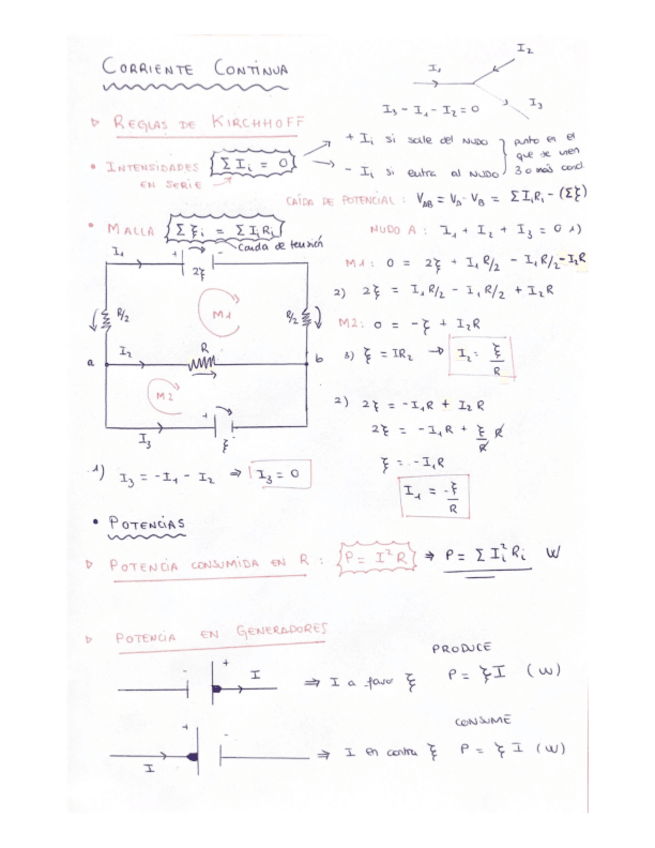 CORRIENTE CONTINUA
I₁
I₂
I₃
I₃ - I₁ - I₂ = 0
▷ REGLAS DE KIRCHHOFF
• INTENSIDADES EN SERIE → Σ I i = 0
+ I i si sale del NUDO
- I i si entra al NUDO
punto en el
que se unen
3 o más cond.
CAÍDA DE POTENCIAL : V_AB = V_A - V_B = Σ I i R i - (Σξ)
• MALLA Σ ξ i = Σ I i R i
Caída de tensión
I₁
+ -
2ξ
R/2
M1
R/2
a
I₂
R
b
M2
I₃
+ -
ξ
NUDO A : I₁ + I₂ + I₃ = 0 1)
M1 : 0 = 2ξ + I₁ R/2 - I₁ R/2 - I₂R
2) 2ξ = I₁ R/2 - I₁ R/2 + I₂R
M2: 0 = -ξ + I₂R
3) ξ = IR₂ → I₂ = ξ/R
2) 2ξ = -I₁R + I₂R
2ξ = -I₁R + ξ/R R
ξ = -I₁R
I₁ = -ξ/R
1) I₃ = -I₁ - I₂ ⇒ I₃ = 0
• POTENCIAS
▷ POTENCIA CONSUMIDA EN R : P = I²R ⇒ P = Σ I i² R i W
▷ POTENCIA EN GENERADORES
PRODUCE
- + I ⇒ I a favor ξ P = ξI (W)
CONSUME
I + - ⇒ I en contra ξ P = ξI (W)